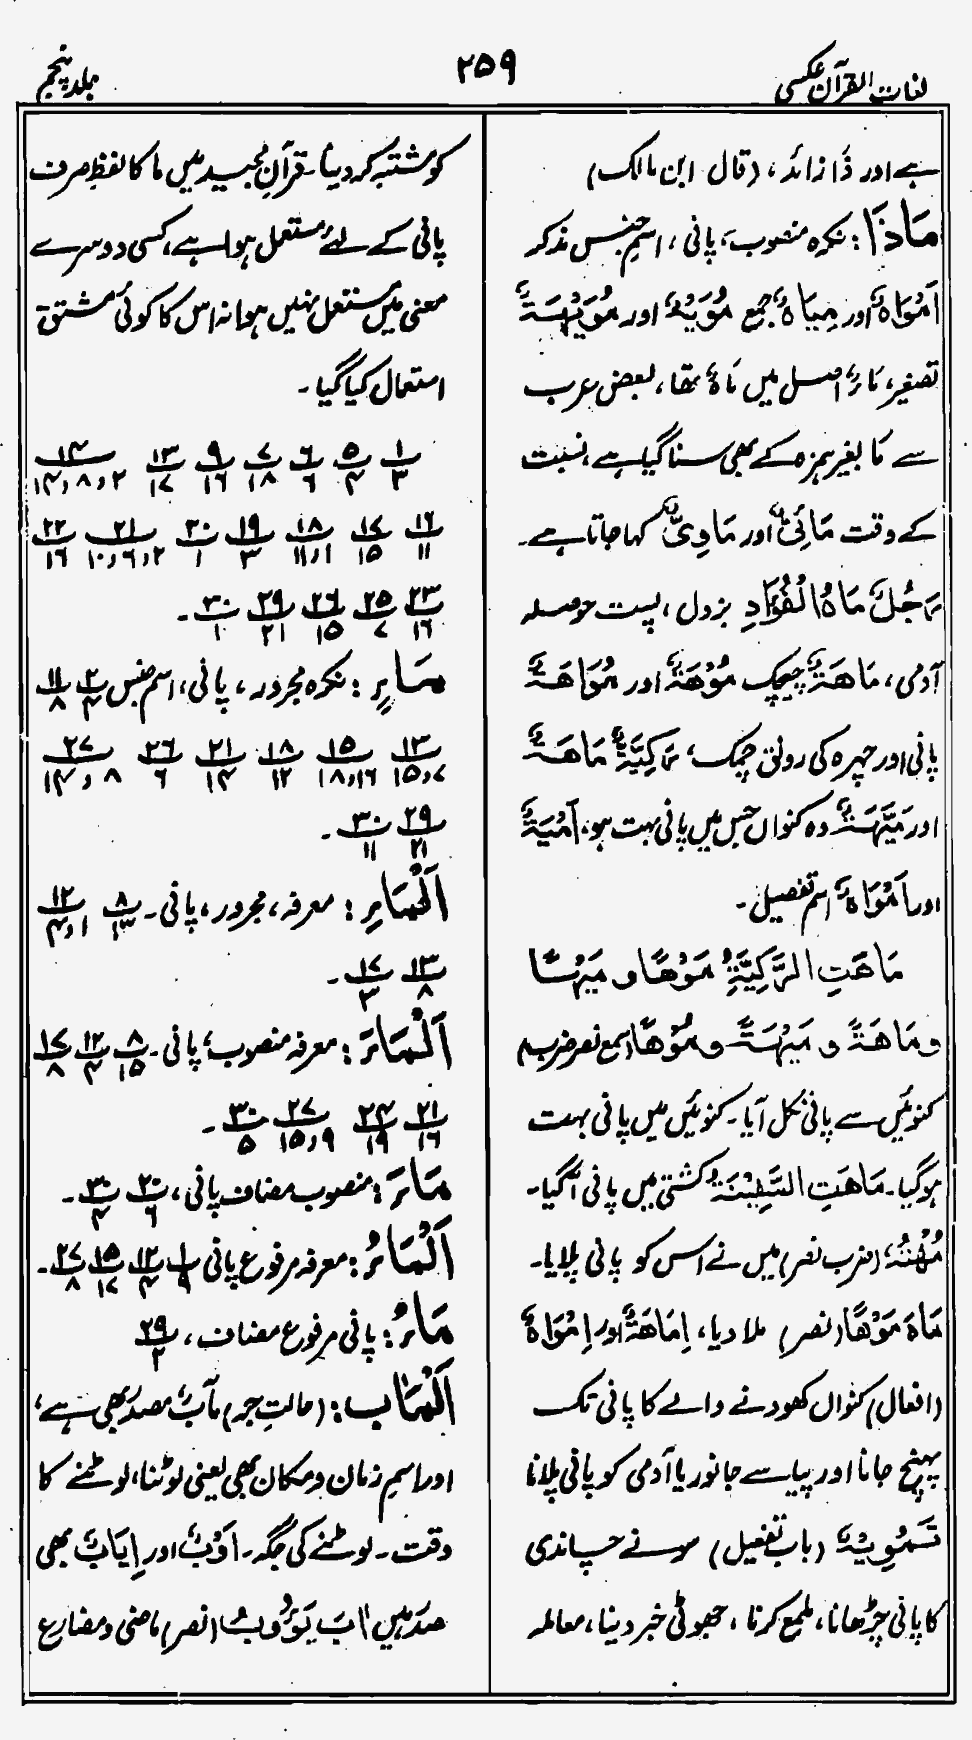 لغات القرآن عکسی
۲۵۹
جلد پنجم
ہے اور ذَا زائد، (قال ابن مالک)
مَاذَا: نکرہ منصوب، پانی، اسمِ جنس مذکر
اَمْوَاہٌ اور مِیَاہٌ جمع مُوَیْہٌ اور مُوَیْہَۃٌ
تصغیر، مَاءٌ اصل میں مَاہٌ تھا، بعض عرب
سے مَا بغیر ہمزہ کے بھی سنا گیا ہے، نسبت
کے وقت مَائِیٌّ اور مَاوِیٌّ کہا جاتا ہے۔
رَجُلٌ مَاہُ الْفُؤَادِ بزدل، پست حوصلہ
آدمی، مَاھَۃٌ چیچک مُوْھَۃٌ اور مُوَاھَۃٌ
پانی اور چہرہ کی رونق چمک، رَکِیَّۃٌ مَاھَۃٌ
اور مَیِّہَۃٌ وہ کنواں جس میں پانی بہت ہو، اَمْیَہُ
اور اَمْوَاہٌ اسم تفصیل۔
مَاھَتِ الرَّکِیَّۃُ مَوْھًا و مَیْہًا
و مَاھَۃً و مَیْہَۃً و مُوْھًا (سمع نصر ضرب)
کنوئیں سے پانی نکل آیا۔ کنوئیں میں پانی بہت
ہوگیا۔ مَاھَتِ السَّفِیْنَۃُ کشتی میں پانی آگیا۔
مُھْتُہٗ (ضرب نصر) میں نے اس کو پانی پلایا۔
مَاہَ مَوْھًا (نصر) ملا دیا، اِمَاھَۃٌ اور اِمْوَاہٌ
(افعال) کنواں کھودنے والے کا پانی تک
پہنچ جانا اور پیاسے جانور یا آدمی کو پانی پلانا
تَمْوِیْہٌ (باب تفعیل) سونے چاندی
کا پانی چڑھانا، ملمع کرنا، جھوٹی خبر دینا، معاملہ
کو مشتبہ کر دینا۔ قرآنِ مجید میں ما کا لفظ صرف
پانی کے لئے مستعمل ہوا ہے، کسی دوسرے
معنی میں مستعمل نہیں ہوا نہ اس کا کوئی مشتق
استعمال کیا گیا۔
۱/۳ ۵/۴ ۶/۶ ۷/۱۸ ۹/۱۶ ۱۳/۱۷ ۱۴/۲،۸،۱۴
۱۶/۱۱ ۱۷/۱۵ ۱۸/۱،۱۱ ۱۹/۳ ۲۰/۱ ۲۱/۲،۶،۱۰ ۲۲/۱۶
۲۳/۱۶ ۲۵/۷ ۲۶/۱۵ ۲۹/۲۱ ۳۰/۱۔
مَاءٍ: نکرہ مجرور، پانی، اسم جنس ۲/۴ ۱۱/۸
۱۳/۷،۱۵ ۱۵/۱۶،۱۸ ۱۸/۱۲ ۲۱/۱۴ ۲۶/۶ ۲۷/۸،۱۴
۲۹/۲۱ ۳۰/۱۱۔
اَلْمَاءِ: معرفہ، مجرور، پانی۔ ۸/۱۳ ۱۲/۱،۴
۱۳/۸ ۱۷/۳۔
اَلْمَاءَ: معرفہ منصوب، پانی۔ ۸/۱۵ ۱۲/۴ ۱۷/۸
۲۱/۱۶ ۲۴/۱۹ ۲۷/۹،۱۵ ۳۰/۵۔
مَاءَ: منصوب مضاف پانی، ۲۰/۶ ۳۰/۴۔
اَلْمَاءُ: معرفہ مرفوع پانی ۱/۹ ۱۲/۴ ۱۵/۱۷ ۲۷/۸۔
مَاءُ: پانی مرفوع مضاف، ۲۹/۲
اَلْمَاٰب: (حالتِ جر) مَآبٌ مصدر بھی ہے،
اور اسمِ زمان و مکان بھی یعنی لوٹنا، لوٹنے کا
وقت۔ لوٹنے کی جگہ۔ اَوْبٌ اور اِیَابٌ بھی
مصدر ہیں اٰبَ یَؤُوْبُ (نصر) ماضی و مضارع